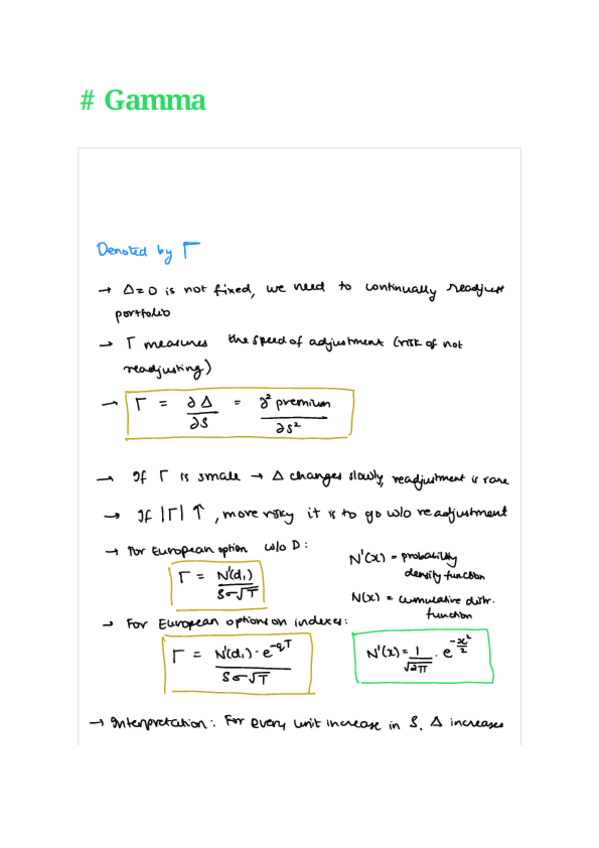 # Gamma
Denoted by Γ
→ Δ=0 is not fixed, we need to continually readjust
portfolio
→ Γ measures the speed of adjustment (risk of not
readjusting)
→ Γ = ∂Δ/∂S = ∂² premium/∂S²
→ If Γ is small → Δ changes slowly, readjustment is rare
→ If |Γ| ↑, more risky it is to go w/o readjustment
→ For European option w/o D:
Γ = N'(d₁)/Sσ√T
N'(x) = probability
density function
N(x) = cumulative distr.
function
→ For European options on indexes:
Γ = N'(d₁)·e^-qT/Sσ√T
N'(x) = 1/√2π · e^-x²/2
→ Interpretation: For every unit increase in S, Δ increases